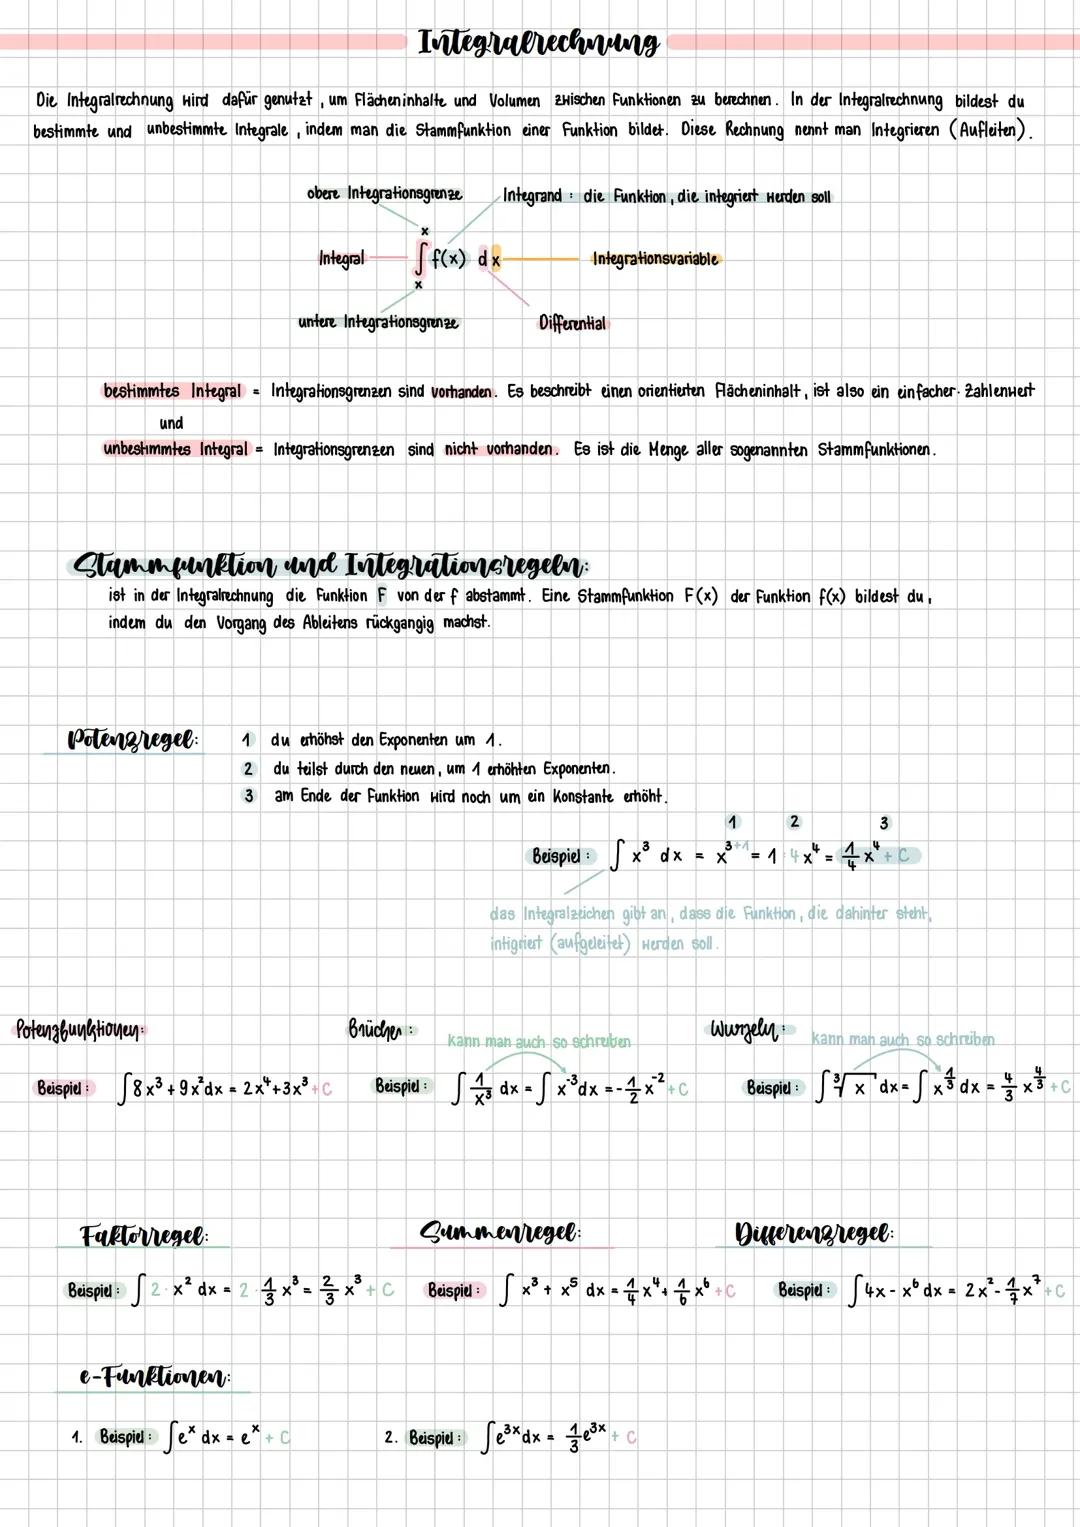 Integralrechnung
Die Integralrechnung wird dafür genutzt, um Flächeninhalte und Volumen zwischen Funktionen zu berechnen. In der Integralrechnung bildest du
bestimmte und unbestimmte Integrale, indem man die Stammfunktion einer Funktion bildet. Diese Rechnung nennt man Integrieren (Aufleiten).
obere Integrationsgrenze
Integrand: die Funktion, die integriert werden soll
x
Integral ∫ f(x) dx Integrationsvariable
x
untere Integrationsgrenze
Differential
bestimmtes Integral = Integrationsgrenzen sind vorhanden. Es beschreibt einen orientierten Flächeninhalt, ist also ein einfacher Zahlenwert
und
unbestimmtes Integral = Integrationsgrenzen sind nicht vorhanden. Es ist die Menge aller sogenannten Stammfunktionen.
Stammfunktion und Integrationsregeln:
ist in der Integralrechnung die Funktion F von der f abstammt. Eine Stammfunktion F(x) der Funktion f(x) bildest du,
indem du den Vorgang des Ableitens rückgangig machst.
Potenzregel:
1 du erhöhst den Exponenten um 1.
2 du teilst durch den neuen, um 1 erhöhten Exponenten.
3 am Ende der Funktion wird noch um ein Konstante erhöht.
1 2 3
Beispiel: ∫ x³ dx = x³⁺¹ = 1 : 4 x⁴ = 1/4 x⁴ + C
das Integralzeichen gibt an, dass die Funktion, die dahinter steht,
intigriert (aufgeleitet) werden soll.
Potenzfunktionen:
Beispiel: ∫ 8x³ + 9x² dx = 2x⁴ + 3x³ + C
Brüche:
kann man auch so schreiben
Beispiel: ∫ 1/x³ dx = ∫ x⁻³ dx = - 1/2 x⁻² + C
Wurzeln:
kann man auch so schreiben
Beispiel: ∫ ³√x dx = ∫ x^(1/3) dx = 4/3 x^(4/3) + C
Faktorregel:
Beispiel: ∫ 2 · x² dx = 2 · 1/3 x³ = 2/3 x³ + C
Summenregel:
Beispiel: ∫ x³ + x⁵ dx = 1/4 x⁴ + 1/6 x⁶ + C
Differenzregel:
Beispiel: ∫ 4x - x⁶ dx = 2x² - 1/7 x⁷ + C
e-Funktionen:
1. Beispiel: ∫ eˣ dx = eˣ + C
2. Beispiel: ∫ e³ˣ dx = 1/3 e³ˣ + C